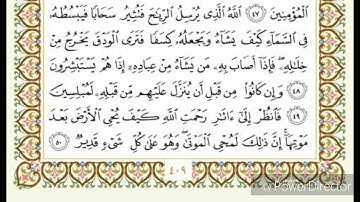 ٱلْمُؤْمِنِينَ ٤٧ ٱللَّهُ ٱلَّذِى يُرْسِلُ ٱلرِّيَٰحَ فَتُثِيرُ سَحَابًا فَيَبْسُطُهُۥ
فِى ٱلسَّمَآءِ كَيْفَ يَشَآءُ وَيَجْعَلُهُۥ كِسَفًا فَتَرَى ٱلْوَدْقَ يَخْرُجُ مِنْ
خِلَٰلِهِۦ فَإِذَآ أَصَابَ بِهِۦ مَن يَشَآءُ مِنْ عِبَادِهِۦٓ إِذَا هُمْ يَسْتَبْشِرُونَ
٤٨ وَإِن كَانُوا۟ مِن قَبْلِ أَن يُنَزَّلَ عَلَيْهِم مِّن قَبْلِهِۦ لَمُبْلِسِينَ
٤٩ فَٱنظُرْ إِلَىٰٓ ءَاثَٰرِ رَحْمَتِ ٱللَّهِ كَيْفَ يُحْىِ ٱلْأَرْضَ بَعْدَ
مَوْتِهَآ إِنَّ ذَٰلِكَ لَمُحْىِ ٱلْمَوْتَىٰ وَهُوَ عَلَىٰ كُلِّ شَىْءٍ قَدِيرٌ ٥٠
٤٠٩
PowerDirector